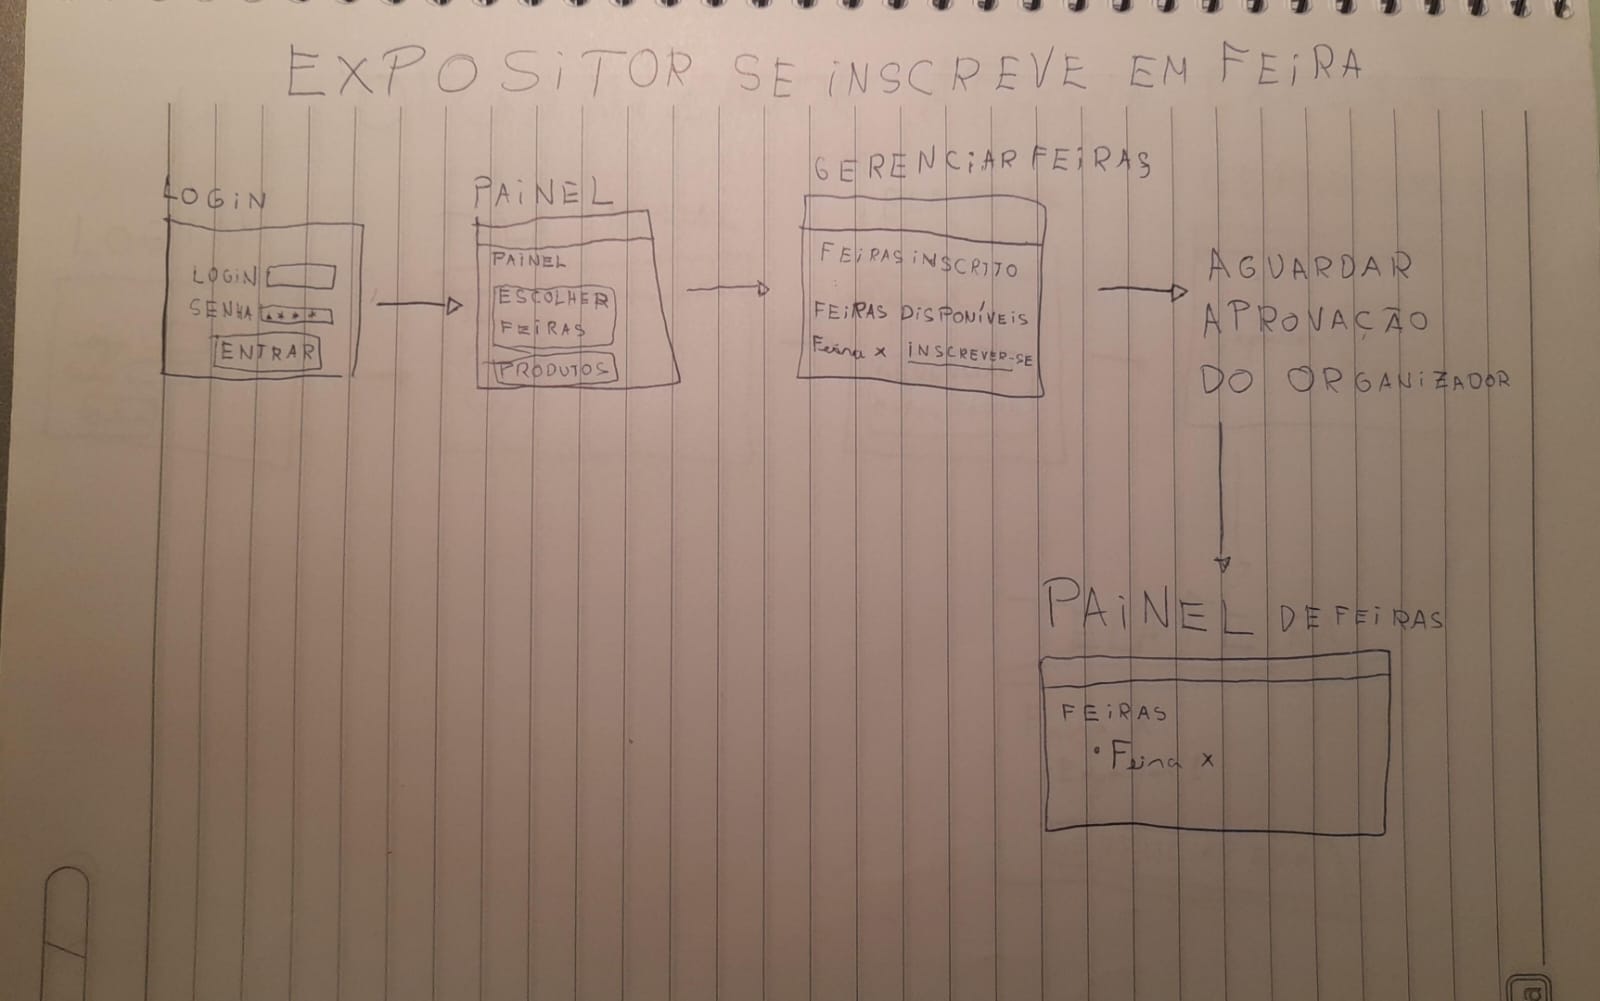 EXPOSITOR SE INSCREVE EM FEIRA
LOGIN
LOGIN
SENHA ****
ENTRAR
PAINEL
PAINEL
ESCOLHER
FEIRAS
PRODUTOS
GERENCIAR FEIRAS
FEIRAS INSCRITO
FEIRAS DISPONÍVEIS
Feira x INSCREVER-SE
AGUARDAR
APROVAÇÃO
DO ORGANIZADOR
PAINEL DE FEIRAS
FEIRAS
• Feira x